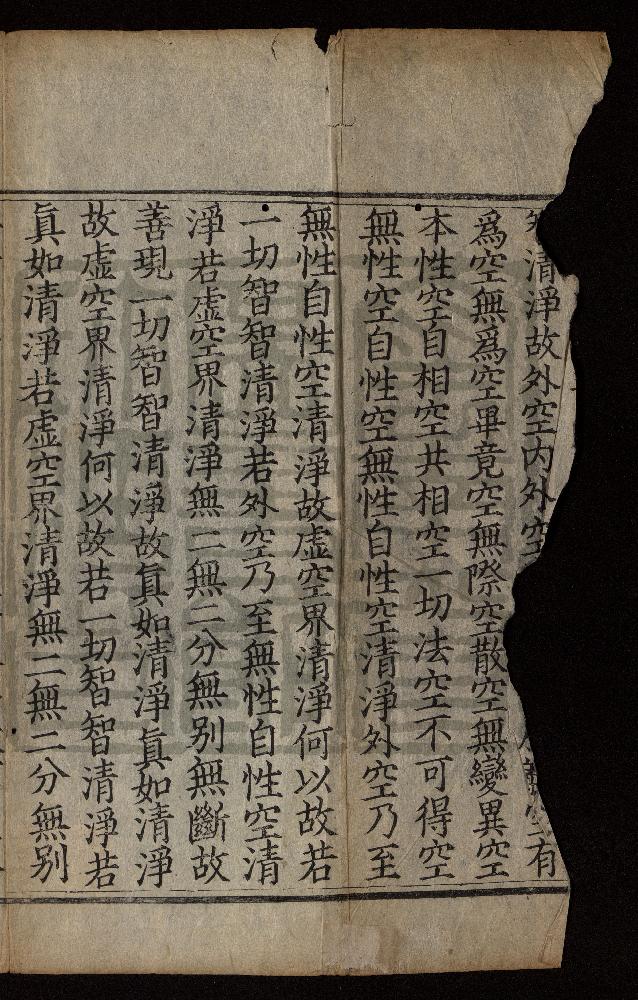 清淨故外空內外空有
爲空無爲空畢竟空無際空散空無變異空
本性空自相空共相空一切法空不可得空
無性空自性空無性自性空清淨外空乃至
無性自性空清淨故虛空界清淨何以故若
一切智智清淨若外空乃至無性自性空清
淨若虛空界清淨無二無二分無別無斷故
善現一切智智清淨故眞如清淨眞如清淨
故虛空界清淨何以故若一切智智清淨若
眞如清淨若虛空界清淨無二無二分無別